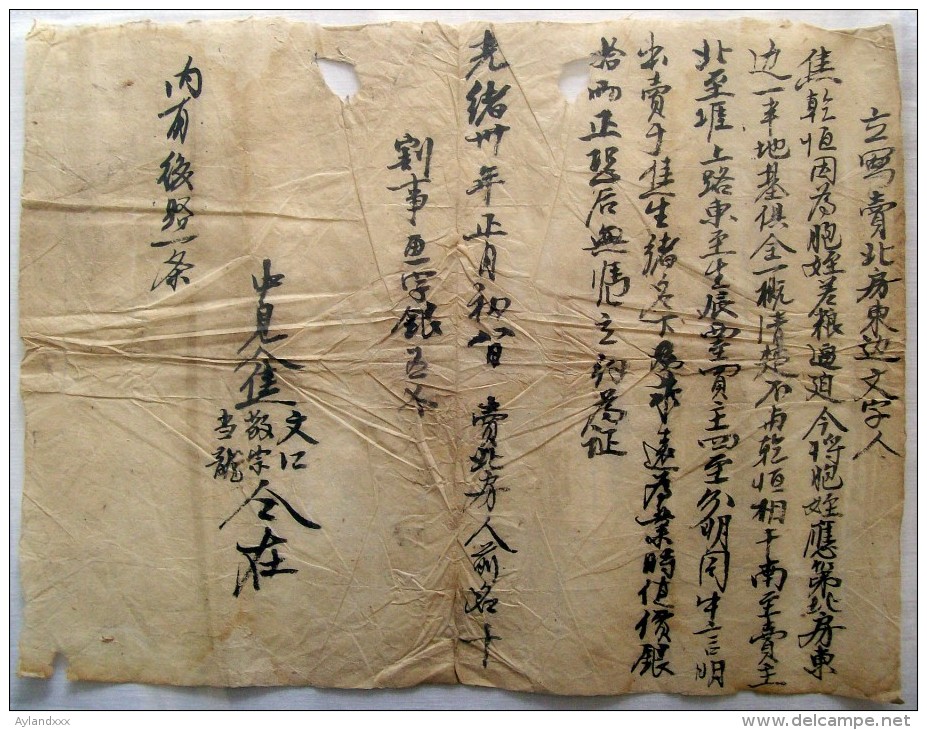 立寫賣北房東边文字人
焦乾恒因為胞姪差粮逼迫今將胞姪應第北房東
边一半地基俱全一概清楚不与乾恒相干南至賣主
北至堆上路東至生辰西至買主四至分明同中言明
出賣于焦生緒名下永遠為業時值價銀
拾両正恐后無憑立約為証
光緒卅年正月初八日 賣北房人前名十
割事画字銀
中見人焦
文
敬宗
当龍
仝在
内有後路一条
Aylandxxx
www.delcampe.net